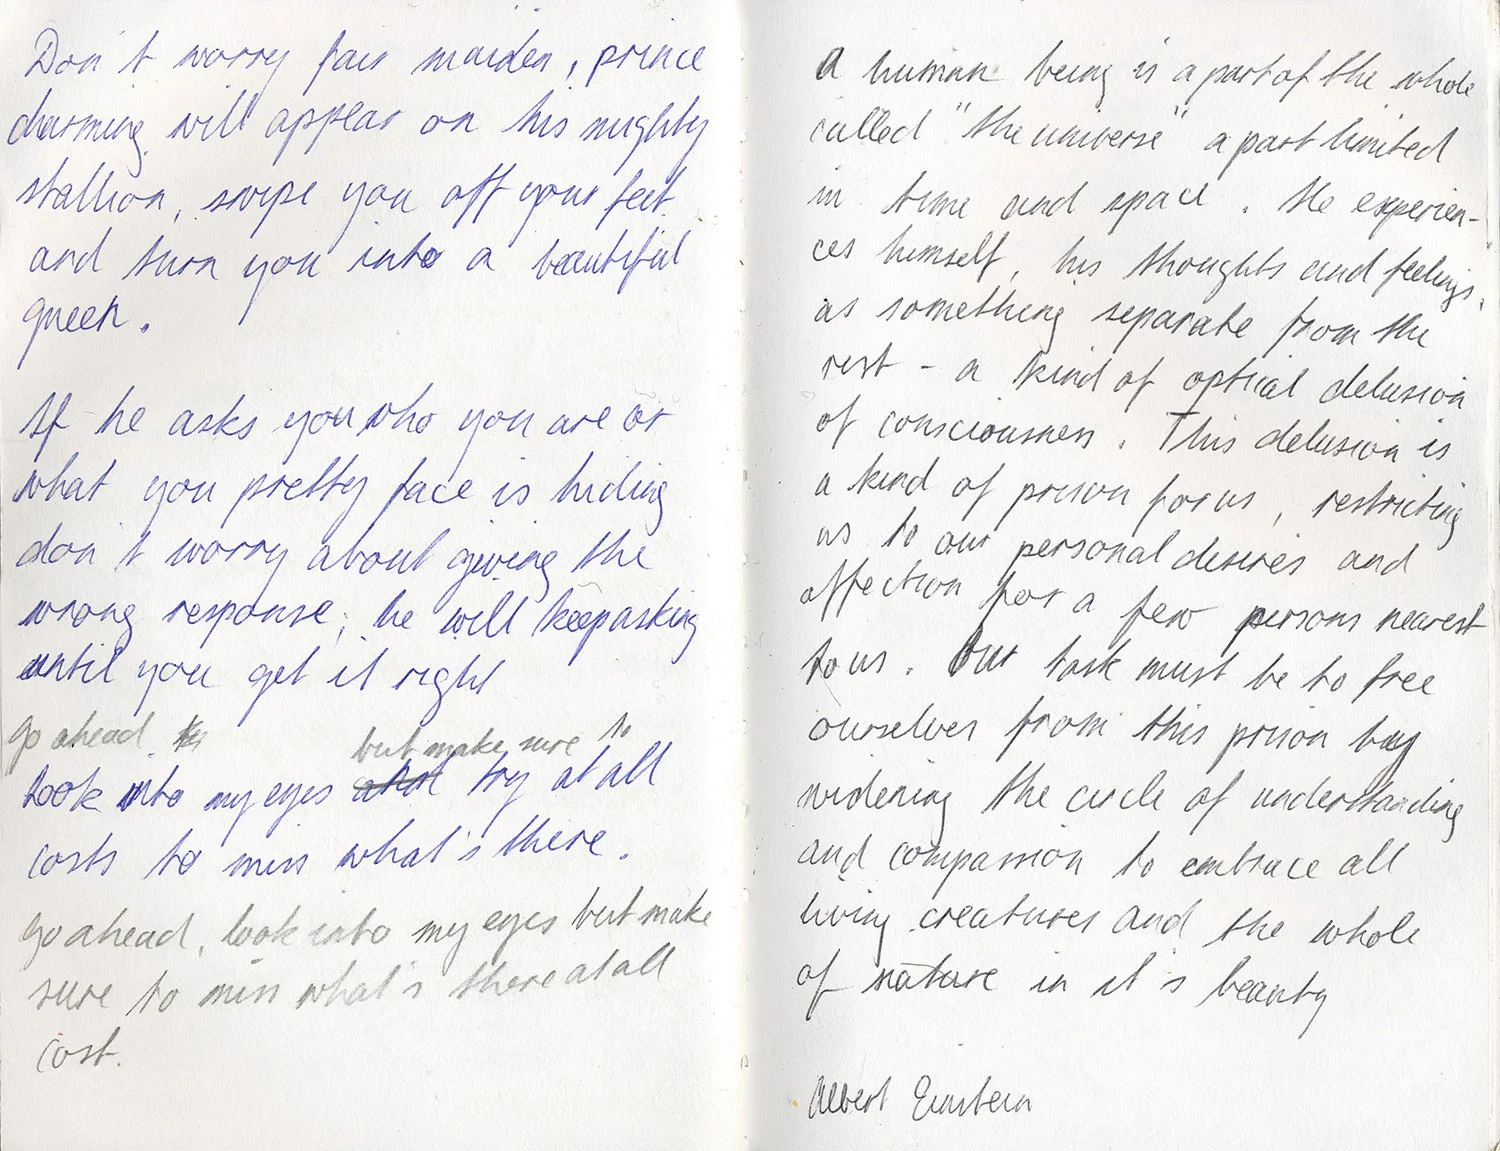 Don't worry fair maiden, prince
charming will appear on his mighty
stallion, swipe you off your feet
and turn you into a beautiful
queen.
If he asks you who you are or
what you pretty face is hiding
don't worry about giving the
wrong response; he will keep asking
until you get it right
go ahead
but make sure to
look into my eyes and try at all
costs to miss what's there.
go ahead, look into my eyes but make
sure to miss what's there at all
cost.
A human being is a part of the whole
called "the universe" a part limited
in time and space. He experien-
ces himself, his thoughts and feelings,
as something separate from the
rest - a kind of optical delusion
of consciousness. This delusion is
a kind of prison for us, restricting
us to our personal desires and
affection for a few persons nearest
to us. Our task must be to free
ourselves from this prison by
widening the circle of understanding
and compassion to embrace all
living creatures and the whole
of nature in it's beauty
Albert Einstein